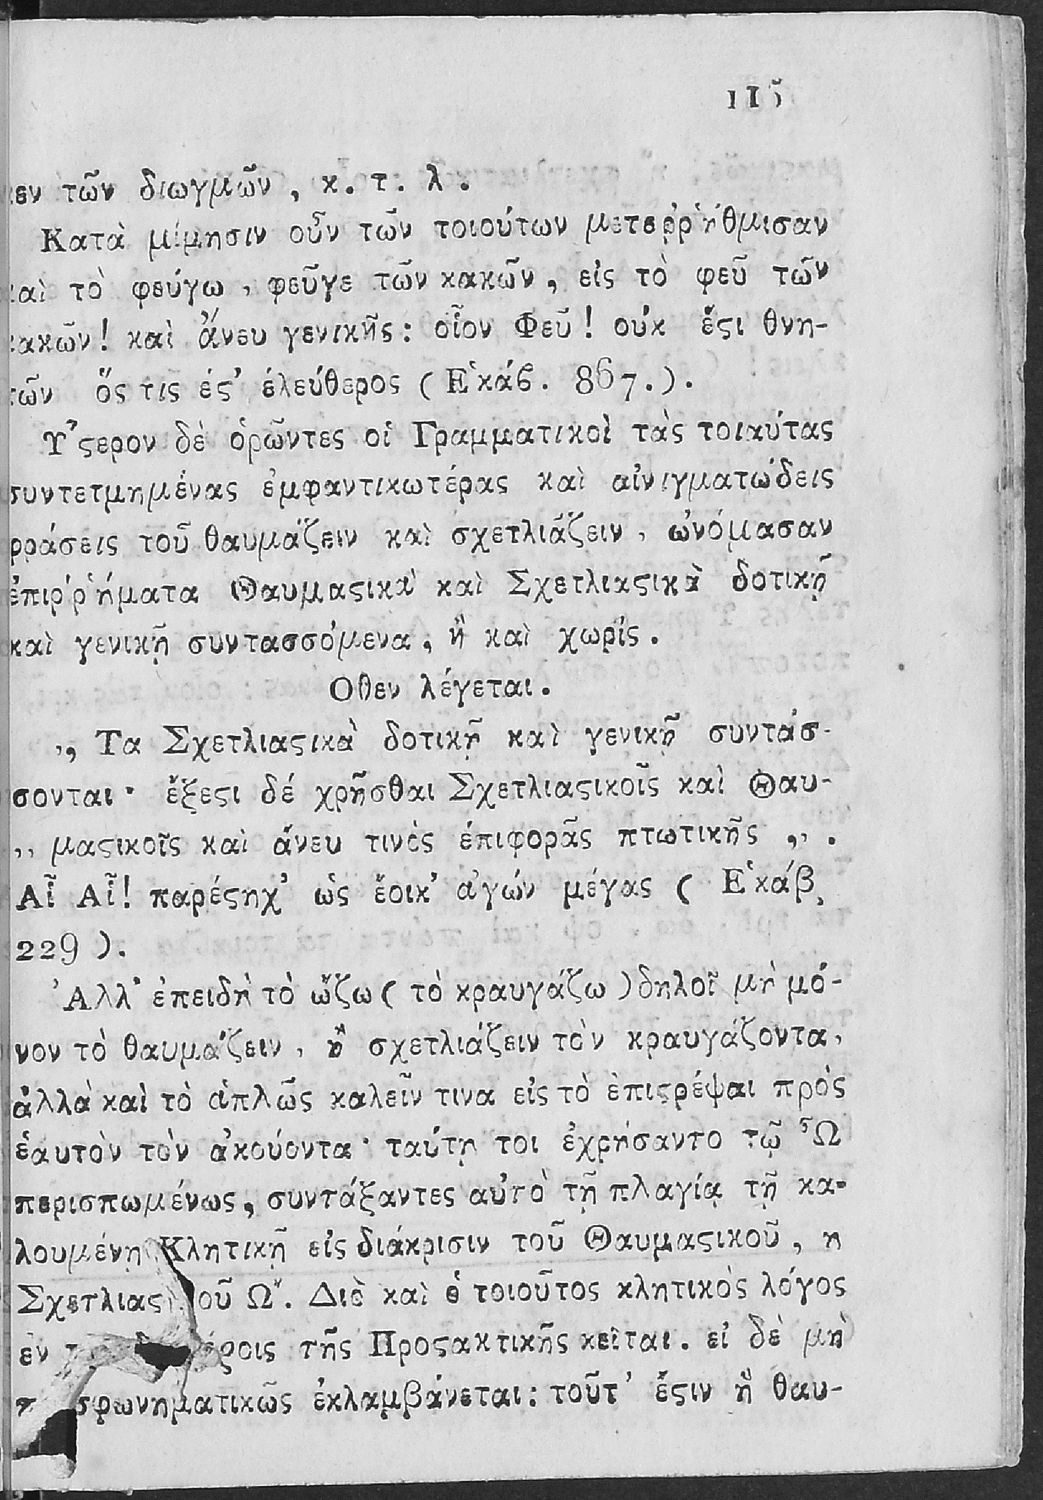 115
κεν τῶν διωγμῶν, κ. τ. λ.
Κατὰ μίμησιν οὖν τῶν τοιούτων μετεῤῥήθμισαν
καὶ τὸ φεύγω, φεῦγε τῶν κακῶν, εἰς τὸ φεῦ τῶν
κακῶν! καὶ ἄνευ γενικῆς: οἷον Φεῦ! οὐκ ἔϛι θνη-
τῶν ὅς τις ἐϛ' ἐλεύθερος (Ἑκάβ. 867.).
Ὕϛερον δὲ ὁρῶντες οἱ Γραμματικοὶ τὰς τοιαύτας
συντετμημένας ἐμφαντικωτέρας καὶ αἰνιγματώδεις
φράσεις τοῦ θαυμάζειν καὶ σχετλιάζειν, ὠνόμασαν
ἐπιῤῥήματα Θαυμαϛικὰ καὶ Σχετλιαϛικὰ δοτικῇ
καὶ γενικῇ συντασσόμενα, ἢ καὶ χωρίς.
Οθεν λέγεται.
,, Τα Σχετλιαϛικὰ δοτικῇ καὶ γενικῇ συντάσ-
σονται· ἔξεϛι δέ χρῆσθαι Σχετλιαϛικοῖς καὶ Θαυ-
,, μαϛικοῖς καὶ ἄνευ τινὸς ἐπιφορᾶς πτωτικῆς ,,.
Αἶ Αἶ! παρέϛηχ' ὡς ἔοικ' ἀγών μέγας (Ἑκάβ,
229).
Ἀλλ' ἐπειδὴ τὸ ὤζω (τὸ κραυγάζω) δηλοῖ μὴ μό-
νον τὸ θαυμάζειν, ἢ σχετλιάζειν τὸν κραυγάζοντα,
ἀλλὰ καὶ τὸ ἁπλῶς καλεῖν τινα εἰς τὸ ἐπιϛρέψαι πρὸς
ἑαυτὸν τὸν ἀκούοντα· ταύτῃ τοι ἐχρήσαντο τῷ Ὦ
περισπωμένως, συντάξαντες αὐτὸ τῇ πλαγίᾳ τῇ κα-
λουμένῃ Κλητικῇ εἰς διάκρισιν τοῦ Θαυμαϛικοῦ, η
Σχετλιαϛ οῦ Ὤ. Διὸ καὶ ὁ τοιοῦτος κλητικὸς λόγος
ἐν τῆς Προϛακτικῆς κεῖται. εἰ δὲ μὴ
σφωνηματικῶς ἐκλαμβάνεται: τοῦτ' ἔϛιν ἢ θαυ-